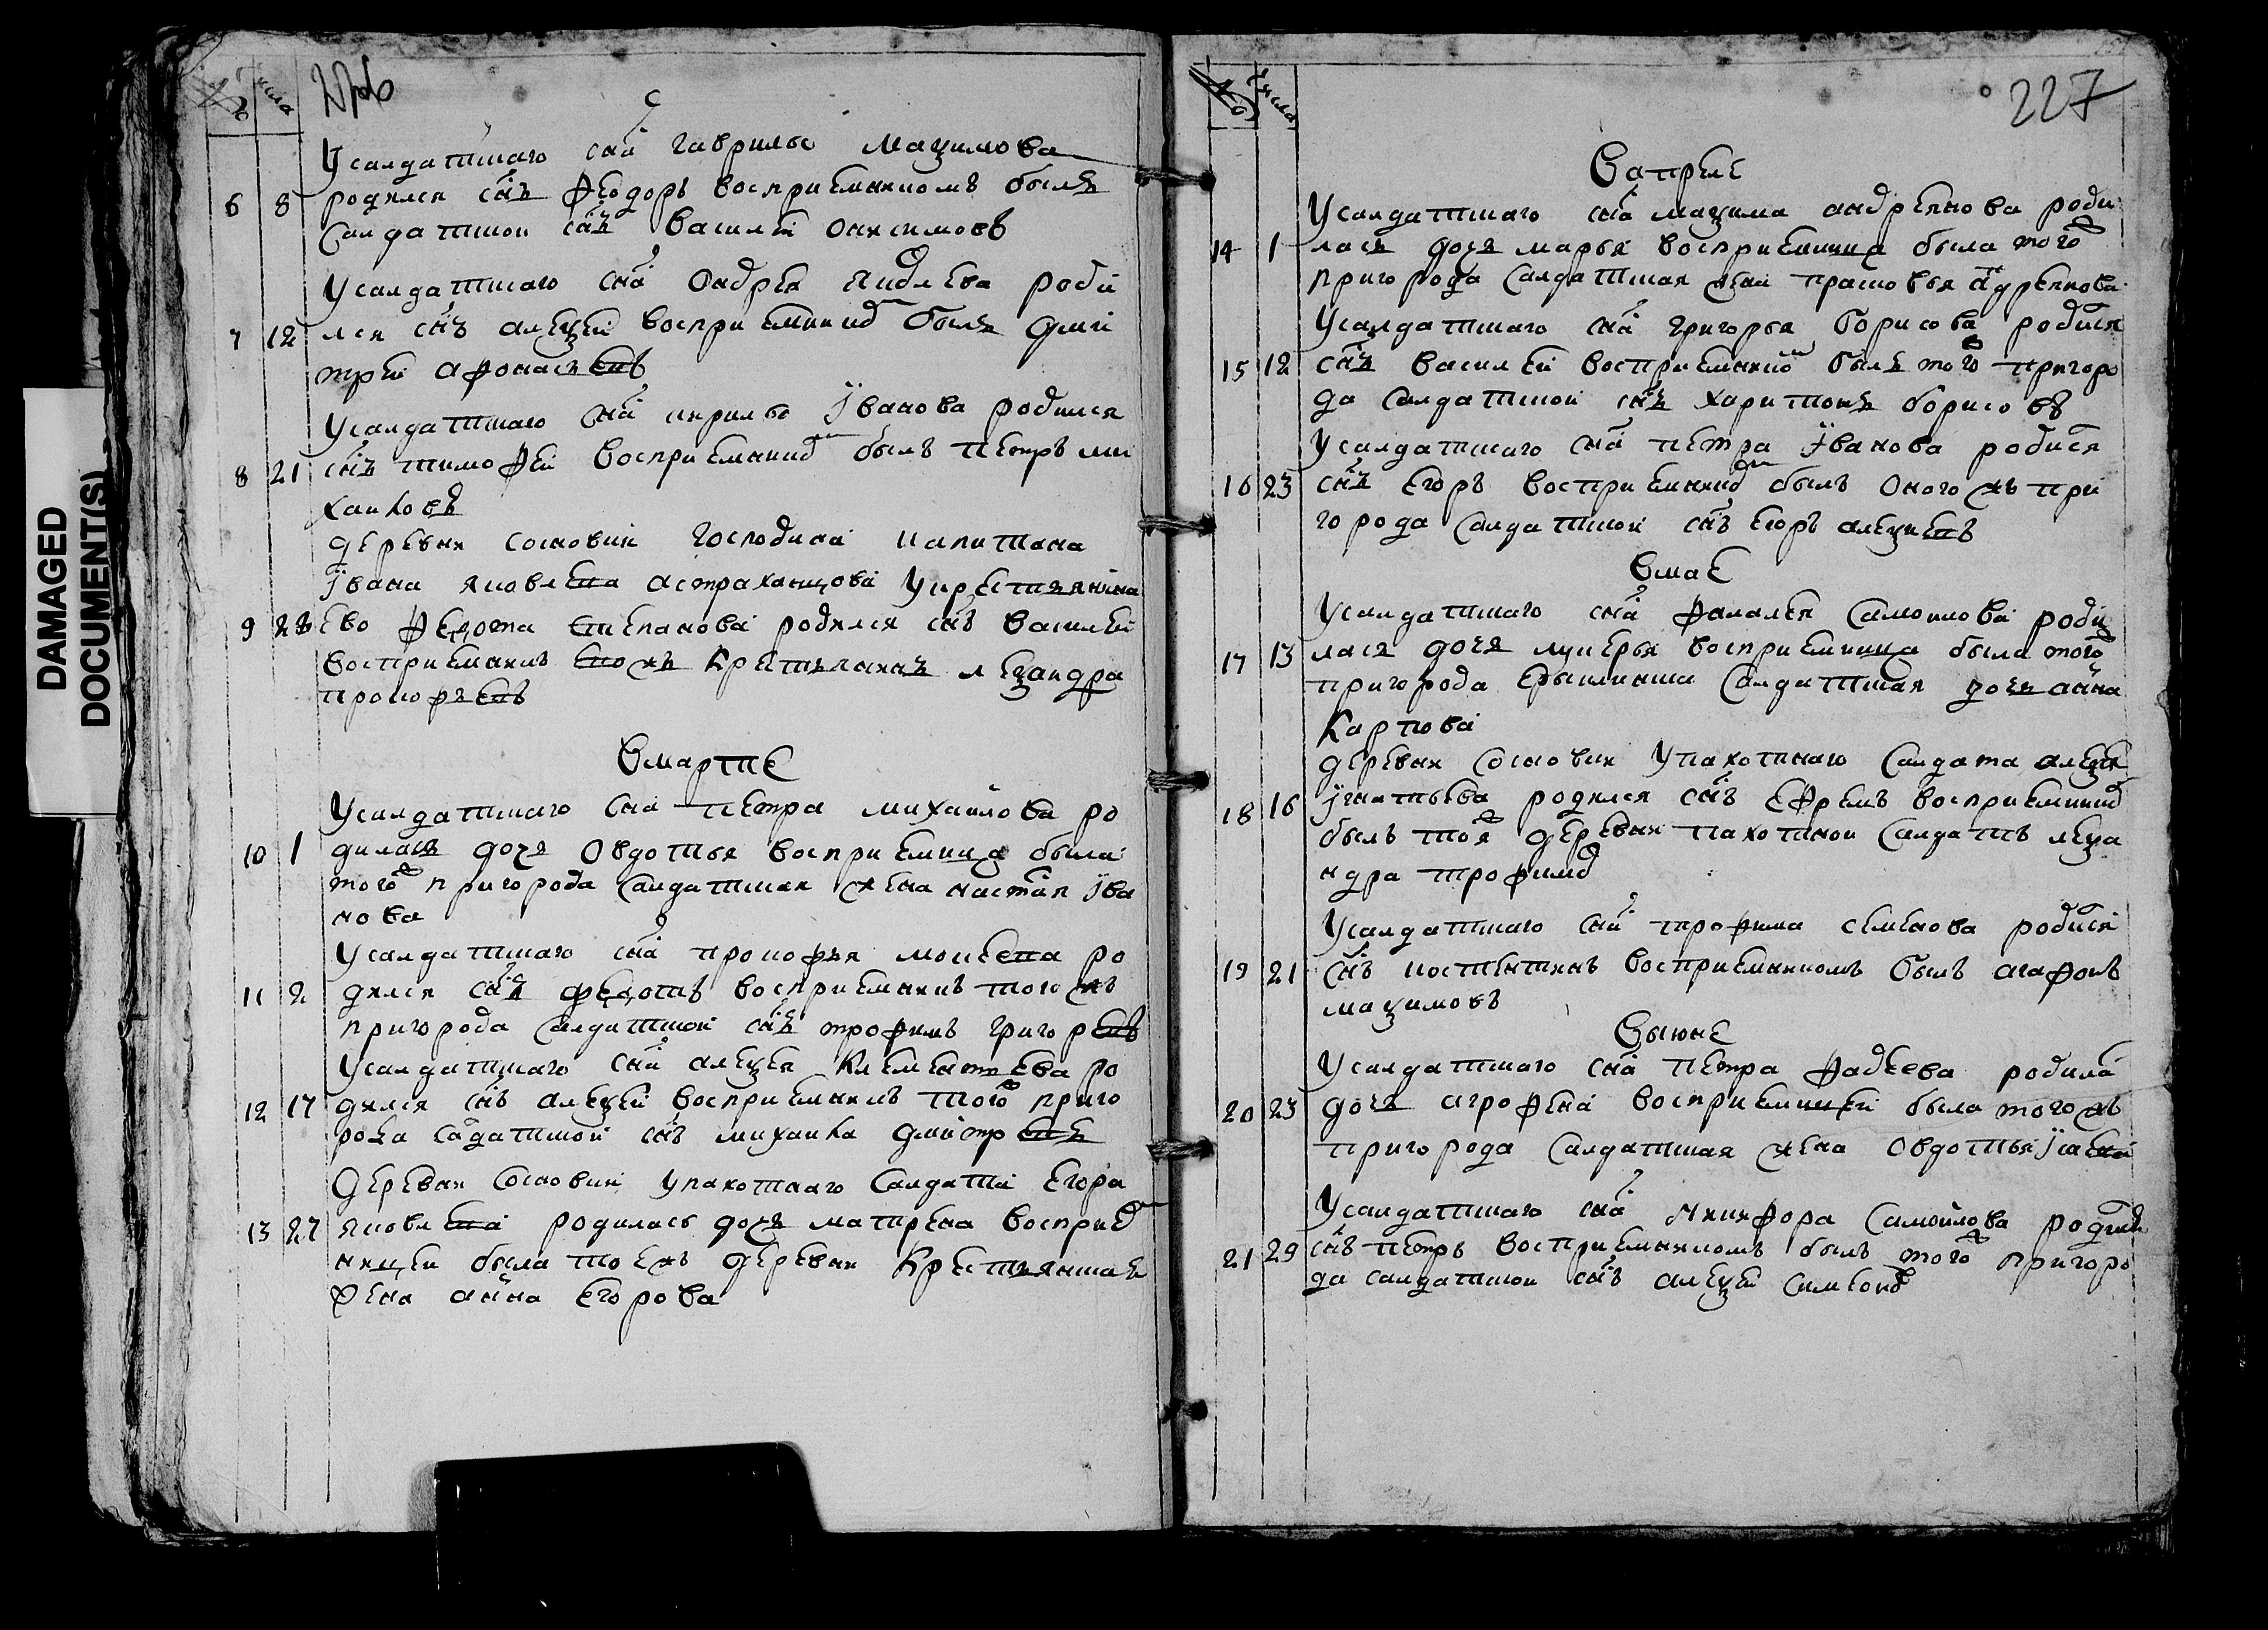 DAMAGED
DOCUMENT(S)
№ числа
Усалдатшаго сна гаврилы мазимова
6 8 родился снъ феодоръ восприемникомъ былъ
салдатшои снъ василеи
Усалдатшаго сна Ондрея роди
7 12 лся снъ алеѯеи восприемникъ былъ дми
треи афонасьевъ
Усалдатшаго сна кирилы Їванова родился
8 21 снъ тимофеи восприемникъ былъ петръ ми
хаиловъ
деревни сосновки господина капитана
Їванa яковлева астраханцова Укрестьянина
9 28 ево федота степанова родился снъ василеи
восприемникъ евожъ крестьянинъ леѯандра
прокофьевъ
Вмартѣ
Усалдатшаго сна петра михаилова ро
10 1 дилася дочя Овдотья восприемница была
того пригорода салдатшая жена настася Їва
нова
Усалдатшаго сна прокофья моисева ро
11 2 дился снъ федотъ восприемникъ тогожъ
пригорода салдатшои снъ трофимъ григоревъ
Усалдатшаго сна алеѯея климентьева ро
12 17 дился снъ алеѯеи восприемникъ того приго
рода садатшои снъ михаила дмитревъ
Деревни сосновки Упахотнаго салдата Егора
13 27 яковлева родилась дочя матрена восприе
мницеи была тоежъ деревни крестьяншая
жена анна Егорова
№ числа
227
Вапреле
Усалдатшаго сна маѯима андреянова роди
14 1 лася дочя марья восприемница была того
пригорода салдатшая жена прасковья андреянова
Усалдатшаго сна григорья борисова родился
15 12 снъ василеи восприемникомъ былъ того пригоро
да салдатшои снъ харитонъ борисовъ
Усалдатшаго сна петра Ївановa родися
16 23 снъ Егоръ восприемникъ былъ Оногожъ при
города салдатшои снъ егоръ алеѯиевъ
Вмае
Усалдатшаго сна фалалея самоилова роди
17 13 лася дочя лукерья восприемница была того
пригорода Ерыклинша салдатшая дочя анна
карпова
деревни сосновки Упахотнаго салдата алеѯея
18 16 Їгнатьева родился снъ Ефремъ восприемникъ
былъ тоя деревни пахотнои салдатъ леѯа
ндра трофимъ
Усалдатшаго сна трофима семенова родися
19 21 снъ костентинъ восприемникомъ былъ агафонъ
маѯимовъ
Выюне
Усалдатшаго сна петра фадеева родила
20 23 дочя агрофена восприемницеи была тогожъ
пригорода салдатшая жена Овдотья Їсаева
Усалдатшаго сна никифора самоилова родися
21 29 снъ петръ восприемникомъ былъ того пригоро
да салдатшои снъ алеѯеи симеонъ